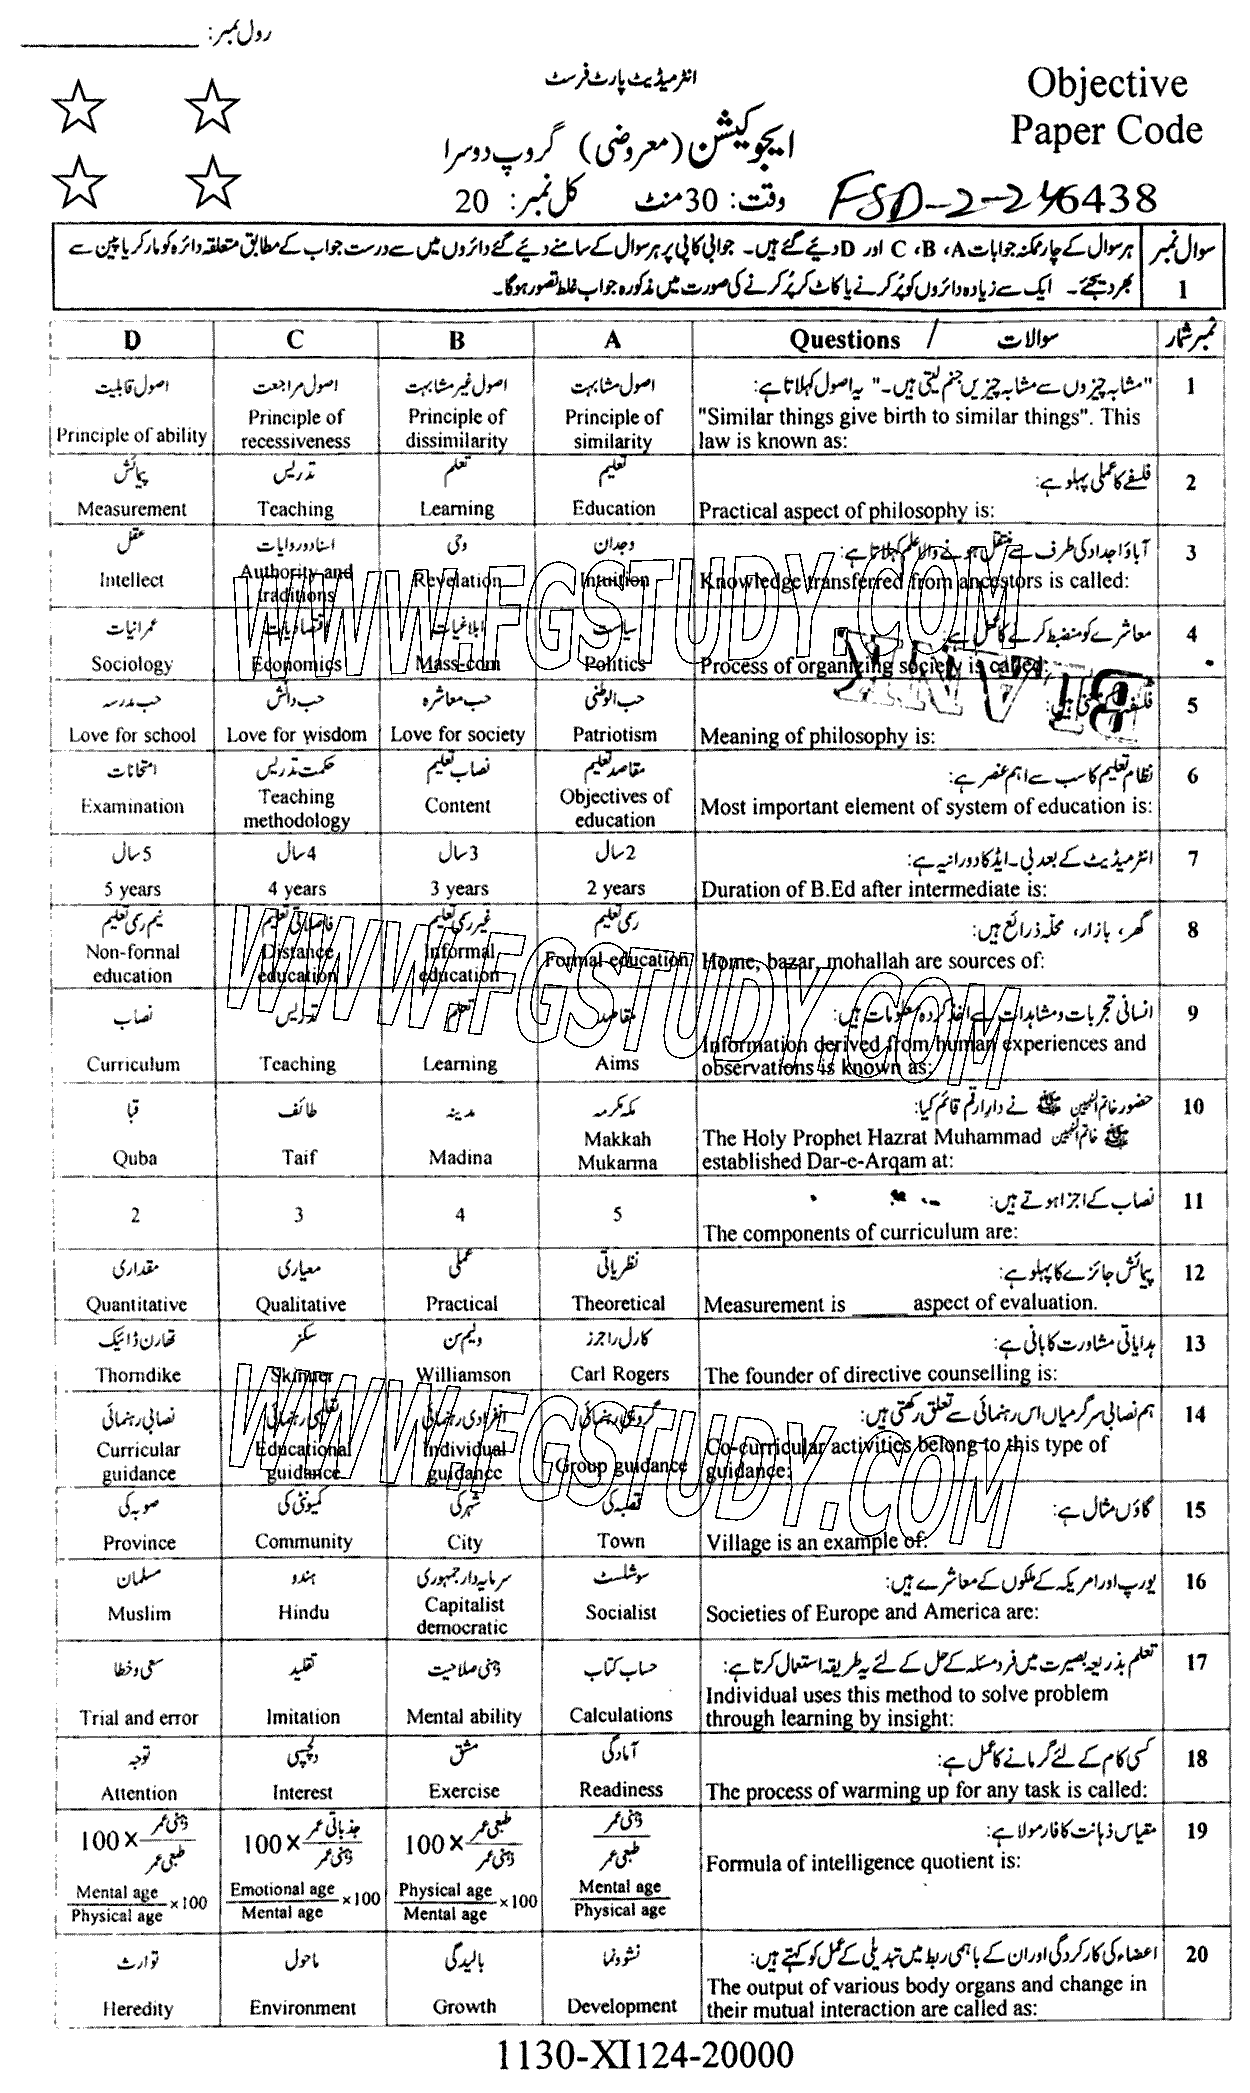 رول نمبر: ____________
انٹرمیڈیٹ پارٹ فرسٹ
Objective
Paper Code
ایجوکیشن (معروضی) گروپ دوسرا
وقت: 30 منٹ کل نمبر: 20
FSD-2-24 6438
سوال نمبر 1
ہر سوال کے چار ممکنہ جوابات A، B، C اور D دیے گئے ہیں۔ جوابی کاپی پر ہر سوال کے سامنے دیئے گئے دائروں میں سے درست جواب کے مطابق متعلقہ دائرہ کو مارکر یا پین سے
بھر دیجئے۔ ایک سے زیادہ دائروں کو پُر کرنے یا کاٹ کر پُر کرنے کی صورت میں مذکورہ جواب غلط تصور ہوگا۔
D C B A Questions / سوالات نمبر شمار
1 "مشابہ چیزوں سے مشابہ چیزیں جنم لیتی ہیں۔" یہ اصول کہلاتا ہے:
"Similar things give birth to similar things". This
law is known as:
اصول مشابہت
Principle of
similarity
اصول غیر مشابہت
Principle of
dissimilarity
اصول مراجعت
Principle of
recessiveness
اصول قابلیت
Principle of ability
2 فلسفے کا عملی پہلو ہے:
Practical aspect of philosophy is:
تعلیم
Education
تعلم
Learning
تدریس
Teaching
پیمائش
Measurement
3 آباؤ اجداد کی طرف سے منتقل ہونے والا علم کہلاتا ہے:
Knowledge transferred from ancestors is called:
وجدان
Intuition
وحی
Revelation
اسناد و روایات
Authority and
traditions
عقل
Intellect
4 معاشرے کو منضبط کرنے کا عمل ہے:
Process of organizing society is called:
سیاست
Politics
ابلاغیات
Mass-com
اقتصادیات
Economics
عمرانیات
Sociology
5
Meaning of philosophy is:
حب الوطنی
Patriotism
حب معاشرہ
Love for society
حب دانش
Love for wisdom
حب مدرسہ
Love for school
6 نظام تعلیم کا سب سے اہم عنصر ہے:
Most important element of system of education is:
مقاصد تعلیم
Objectives of
education
نصاب تعلیم
Content
حکمت تدریس
Teaching
methodology
امتحانات
Examination
7 انٹرمیڈیٹ کے بعد بی۔ایڈ کا دورانیہ ہے:
Duration of B.Ed after intermediate is:
2 سال
2 years
3 سال
3 years
4 سال
4 years
5 سال
5 years
8 گھر، بازار، محلہ ذرائع ہیں:
Home, bazar, mohallah are sources of:
رسمی تعلیم
Formal education
غیر رسمی تعلیم
Informal
education
فاصلاتی تعلیم
Distance
education
نیم رسمی تعلیم
Non-formal
education
9 انسانی تجربات و مشاہدات سے اخذ کردہ معلومات ہیں:
Information derived from human experiences and
observations is known as:
مقاصد
Aims
تعلم
Learning
تدریس
Teaching
نصاب
Curriculum
10 حضور خاتم النبیین ﷺ نے دارِ ارقم قائم کیا:
The Holy Prophet Hazrat Muhammad خاتم النبیین ﷺ
established Dar-e-Arqam at:
مکہ مکرمہ
Makkah
Mukarma
مدینہ
Madina
طائف
Taif
قبا
Quba
11 نصاب کے اجزا ہوتے ہیں:
The components of curriculum are:
5
4
3
2
12 پیمائش جائزے کا پہلو ہے:
Measurement is _____ aspect of evaluation.
نظریاتی
Theoretical
عملی
Practical
معیاری
Qualitative
مقداری
Quantitative
13 ہدایاتی مشاورت کا بانی ہے:
The founder of directive counselling is:
کارل راجرز
Carl Rogers
ولیم سن
Williamson
سکنر
Skinner
تھارن ڈائیک
Thorndike
14 ہم نصابی سرگرمیاں اس رہنمائی سے تعلق رکھتی ہیں:
Co-curricular activities belong to this type of
guidance:
گروہی رہنمائی
Group guidance
انفرادی رہنمائی
Individual
guidance
تعلیمی رہنمائی
Educational
guidance
نصابی رہنمائی
Curricular
guidance
15 گاؤں مثال ہے:
Village is an example of:
قصبہ کی
Town
شہر کی
City
کمیونٹی کی
Community
صوبہ کی
Province
16 یورپ اور امریکہ کے ملکوں کے معاشرے ہیں:
Societies of Europe and America are:
سوشلسٹ
Socialist
سرمایہ دار جمہوری
Capitalist
democratic
ہندو
Hindu
مسلمان
Muslim
17 تعلم بذریعہ بصیرت میں فرد مسئلہ کے حل کے لئے یہ طریقہ استعمال کرتا ہے:
Individual uses this method to solve problem
through learning by insight:
حساب کتاب
Calculations
ذہنی صلاحیت
Mental ability
تقلید
Imitation
سعی و خطا
Trial and error
18 کسی کام کے لئے گرمانے کا عمل ہے:
The process of warming up for any task is called:
آمادگی
Readiness
مشق
Exercise
دلچسپی
Interest
توجہ
Attention
19 مقیاس ذہانت کا فارمولا ہے:
Formula of intelligence quotient is:
ذہنی عمر / طبعی عمر
Mental age / Physical age
طبعی عمر / ذہنی عمر × 100
Physical age / Mental age ×100
جذباتی عمر / ذہنی عمر × 100
Emotional age / Mental age ×100
ذہنی عمر / طبعی عمر × 100
Mental age / Physical age ×100
20 اعضاء کی کارکردگی اور ان کے باہمی ربط میں تبدیلی کے عمل کو کہتے ہیں:
The output of various body organs and change in
their mutual interaction are called as:
نشوونما
Development
بالیدگی
Growth
ماحول
Environment
توارث
Heredity
WWW.FGSTUDY.COM
BLANK
WWW.FGSTUDY.COM
WWW.FGSTUDY.COM
1130-XI124-20000